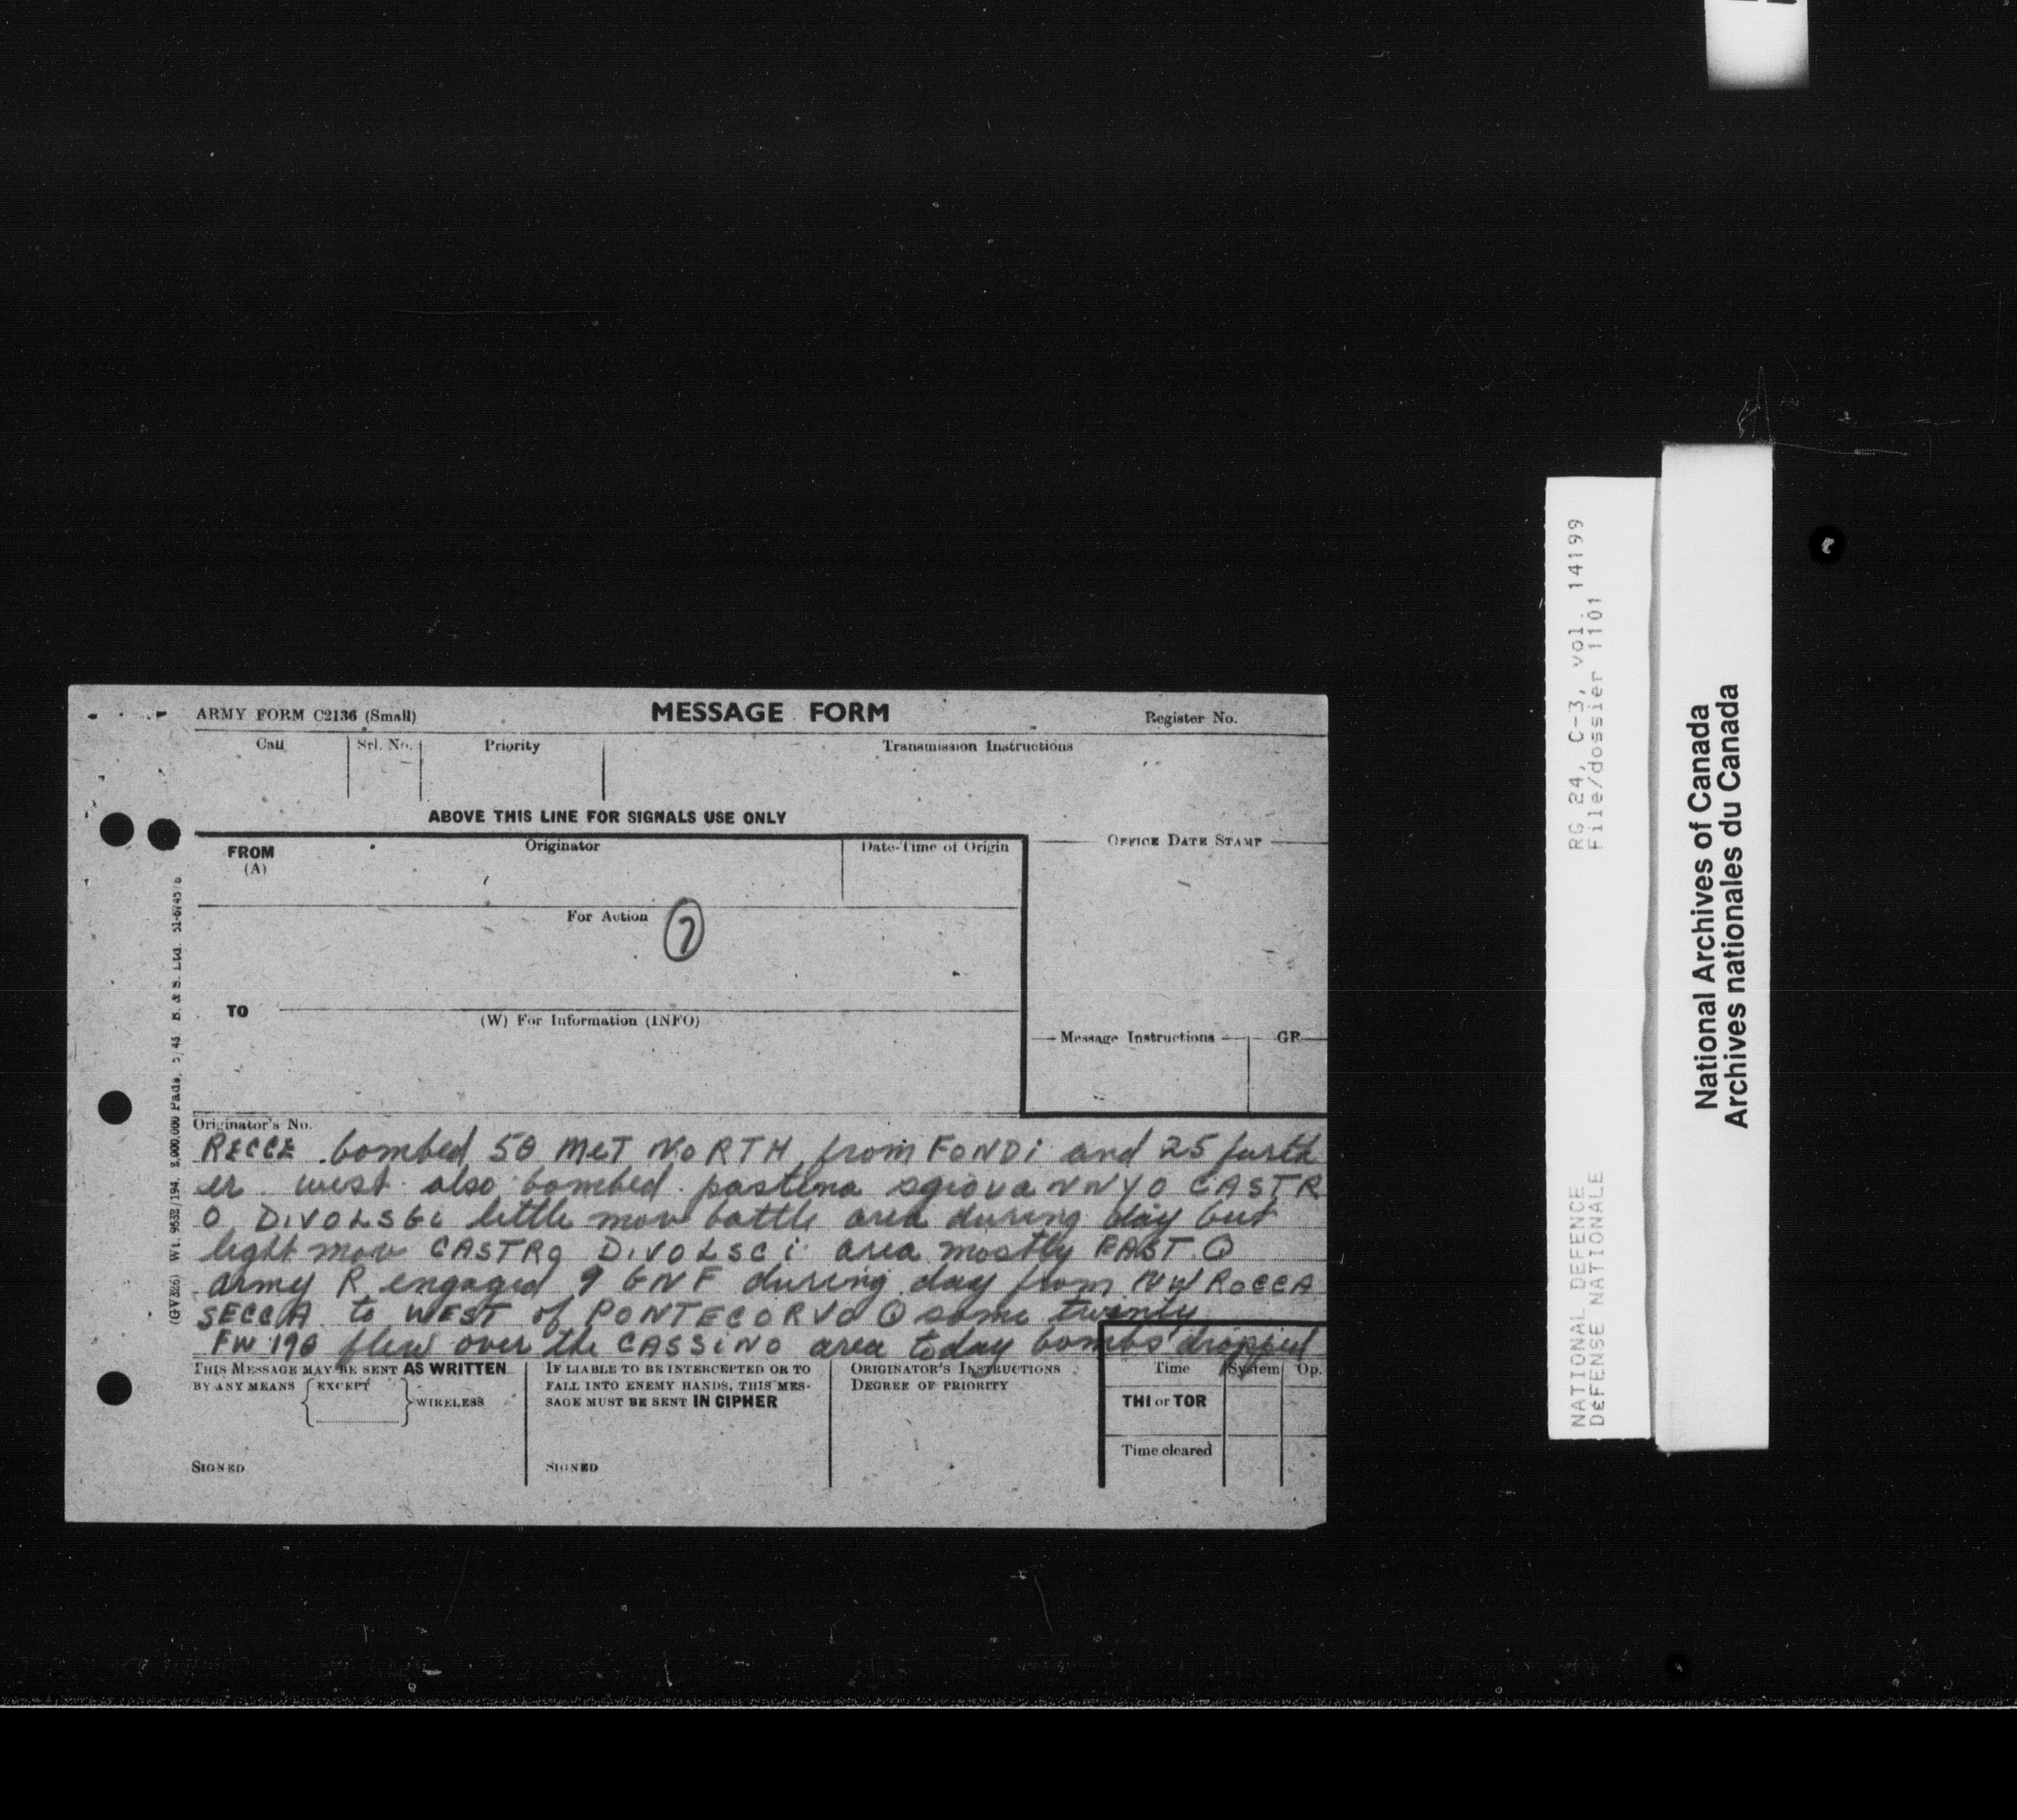 ARMY FORM C2136 (Small)
MESSAGE FORM
Register No.
Call
Srl. No.
Priority
Transmission Instructions
ABOVE THIS LINE FOR SIGNALS USE ONLY
FROM
(A)
Originator
Date-Time of Origin
OFFICE DATE STAMP
For Action
7
TO
(W) For Information (INFO)
Message Instructions
GR
Originator's No.
RECCE bombed 50 MET NORTH from FONDI and 25 furth
er west also bombed pastena sgiovaNNYO CASTR
O DIVOLSGi little mov battle area during day but
light mov CASTRO DiVOLSCi area mostly EAST Q
army R engaged 9 GNF during day from NW ROCCA
SECCA to WEST of PONTECORVO Q some twenty
FW 190 flew over the CASSiNO area today bombs dropped
THIS MESSAGE MAY BE SENT AS WRITTEN
BY ANY MEANS EXCEPT WIRELESS
SIGNED
IF LIABLE TO BE INTERCEPTED OR TO
FALL INTO ENEMY HANDS, THIS MES-
SAGE MUST BE SENT IN CIPHER
SIGNED
ORIGINATOR'S INSTRUCTIONS
DEGREE OF PRIORITY
Time
System
Op.
THI or TOR
Time cleared
(GV326) Wt. 9532/194. 2,000,000 Pads. 5/43 B. & S. Ltd.
RG 24, C-3, vol. 14199
File/dossier 1101
NATIONAL DEFENCE
DEFENSE NATIONALE
National Archives of Canada
Archives nationales du Canada